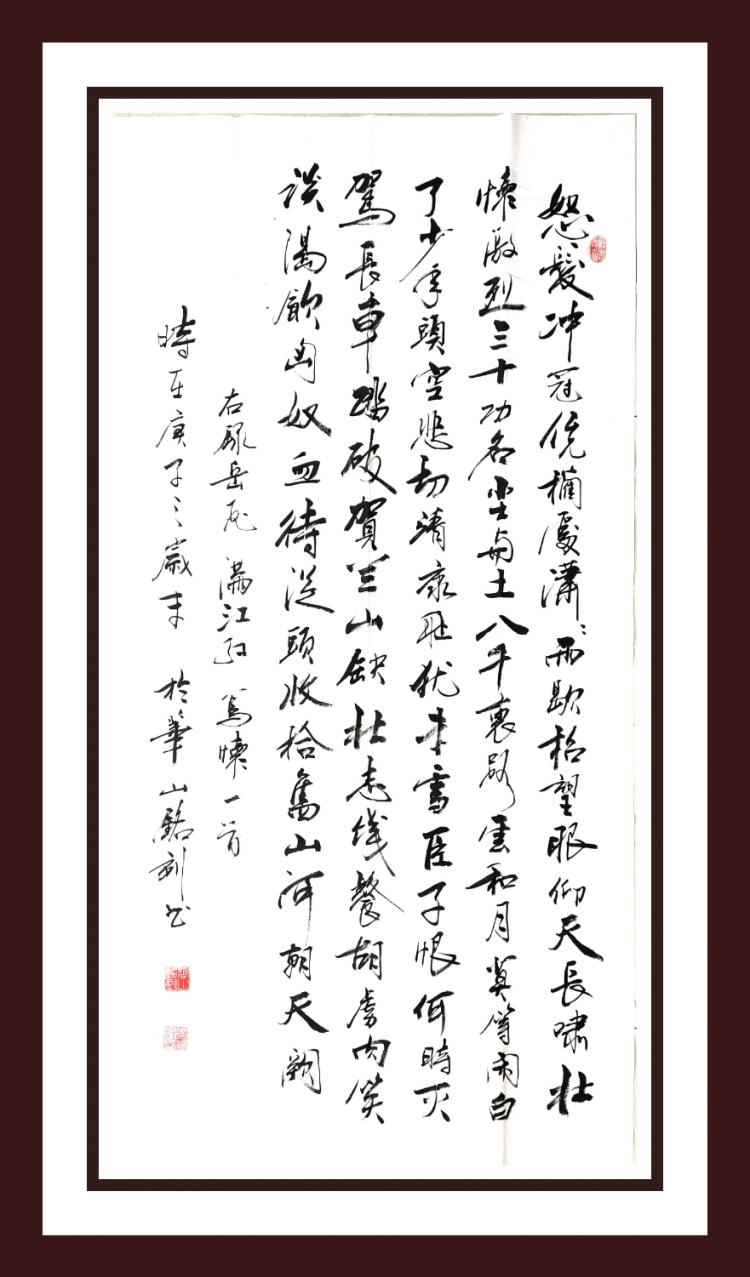 怒髮冲冠凭欄處瀟瀟雨歇抬望眼仰天長嘯壯
懷激烈三十功名尘与土八千裏路雲和月莫等闲白
了少年頭空悲切靖康耻犹未雪臣子恨何時灭
駕長車踏破賀兰山缺壯志饑餐胡虜肉笑
谈渴飲匈奴血待從頭收拾舊山河朝天阙
右録岳飛满江红寫懷一首
時在庚子之歲末於華山銘书